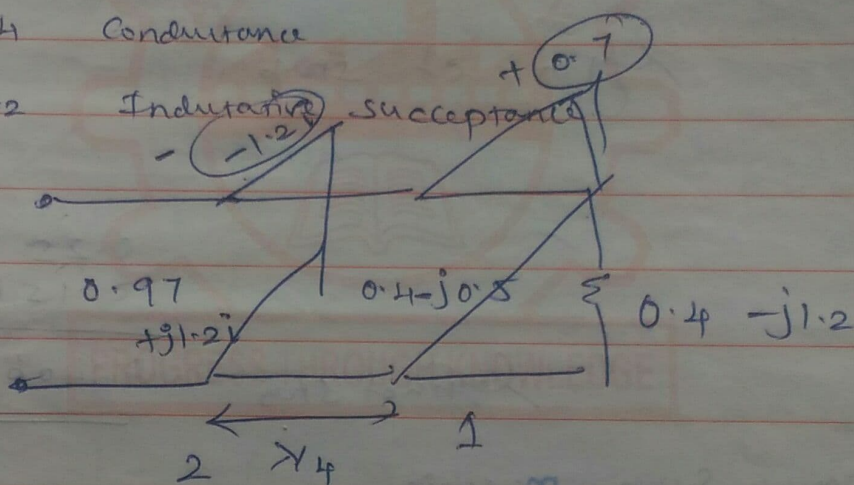 4 Conductance
+ 0.7
2 Inductative succeptance
- -1.2
0.97
+j1.2j
0.4-j0.5
0.4 -j1.2
2 λ/4 1